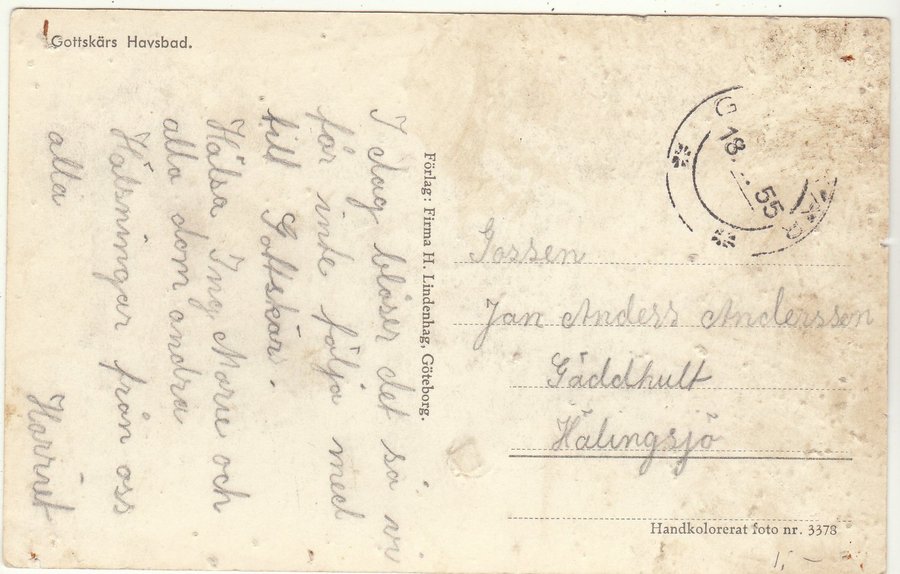 Gottskärs Havsbad.
I dag blåser det så vi
får inte följa med
till Gottskär.
Hälsa Ing Marie och
alla dom andra
Hälsningar från oss
alla
Harriet
Förlag: Firma H. Lindenhag, Göteborg.
G 18. 55
Gossen
Jan Anders Anderssen
Gäddhult
Hälingsjö
Handkolorerat foto nr. 3378
1,-